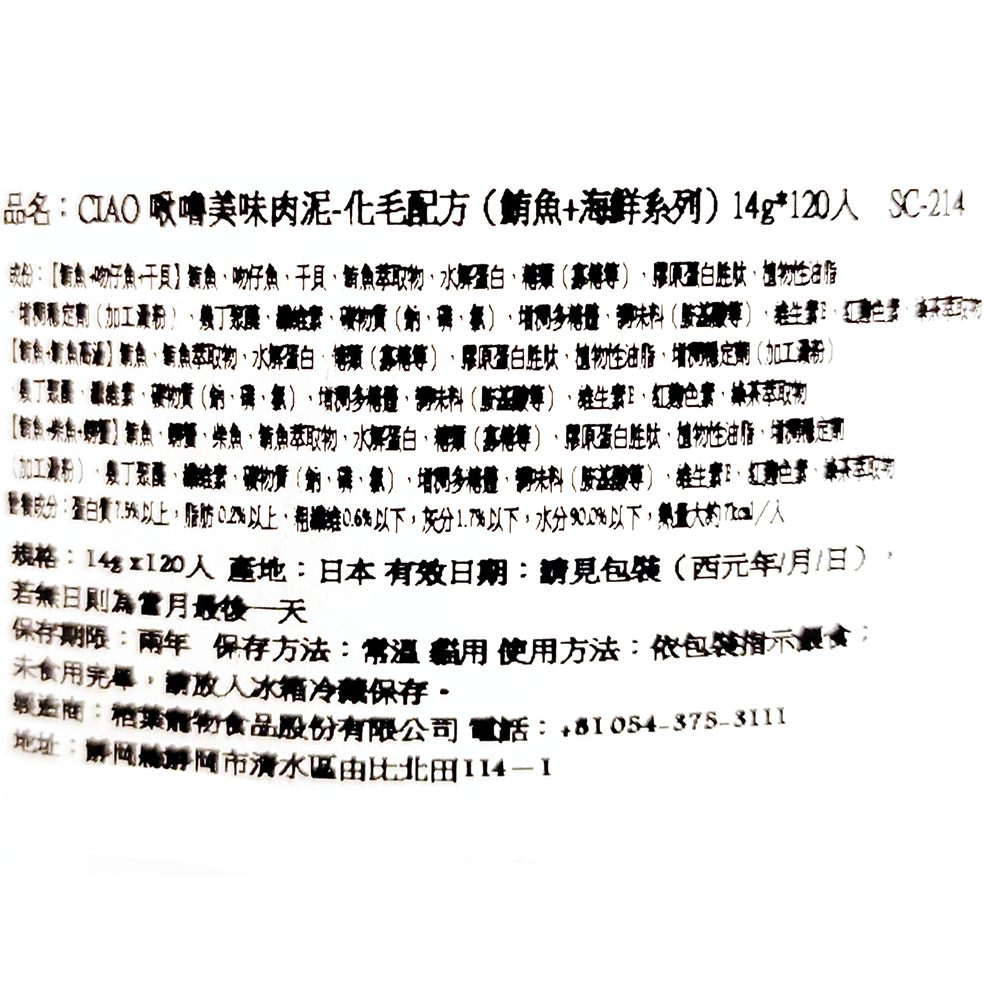 品名：CIAO 啾嚕美味肉泥-化毛配方（鮪魚+海鮮系列）14g*120入 SC-214
成份：【鮪魚+吻仔魚+干貝】鮪魚、吻仔魚、干貝、鮪魚萃取物、水解蛋白、糖類（寡糖等）、膠原蛋白胜肽、植物性油脂
、增稠穩定劑（加工澱粉）、幾丁聚醣、纖維素、礦物質（鈉、磷、氯）、增稠多糖體、調味料（胺基酸等）、維生素E、紅麴色素、綠茶萃取物
【鮪魚+鮪魚高湯】鮪魚、鮪魚萃取物、水解蛋白、糖類（寡糖等）、膠原蛋白胜肽、植物性油脂、增稠穩定劑（加工澱粉）
、幾丁聚醣、纖維素、礦物質（鈉、磷、氯）、增稠多糖體、調味料（胺基酸等）、維生素E、紅麴色素、綠茶萃取物
【鮪魚+柴魚+螃蟹】鮪魚、螃蟹、柴魚、鮪魚萃取物、水解蛋白、糖類（寡糖等）、膠原蛋白胜肽、植物性油脂、增稠穩定劑
（加工澱粉）、幾丁聚醣、纖維素、礦物質（鈉、磷、氯）、增稠多糖體、調味料（胺基酸等）、維生素E、紅麴色素、綠茶萃取物
營養成分：蛋白質7.5%以上，脂肪0.2%以上，粗纖維0.6%以下，灰分1.7%以下，水分90.0%以下，熱量大約7kcal/入
規格：14g x120入 產地：日本 有效日期：請見包裝（西元年/月/日），
若無日則為當月最後一天
保存期限：兩年 保存方法：常溫 貓用 使用方法：依包裝指示餵食；
未食用完畢，請放入冰箱冷藏保存。
製造商：稻葉寵物食品股份有限公司 電話：+81 054-375-3111
地址：靜岡縣靜岡市清水區由比北田114－1